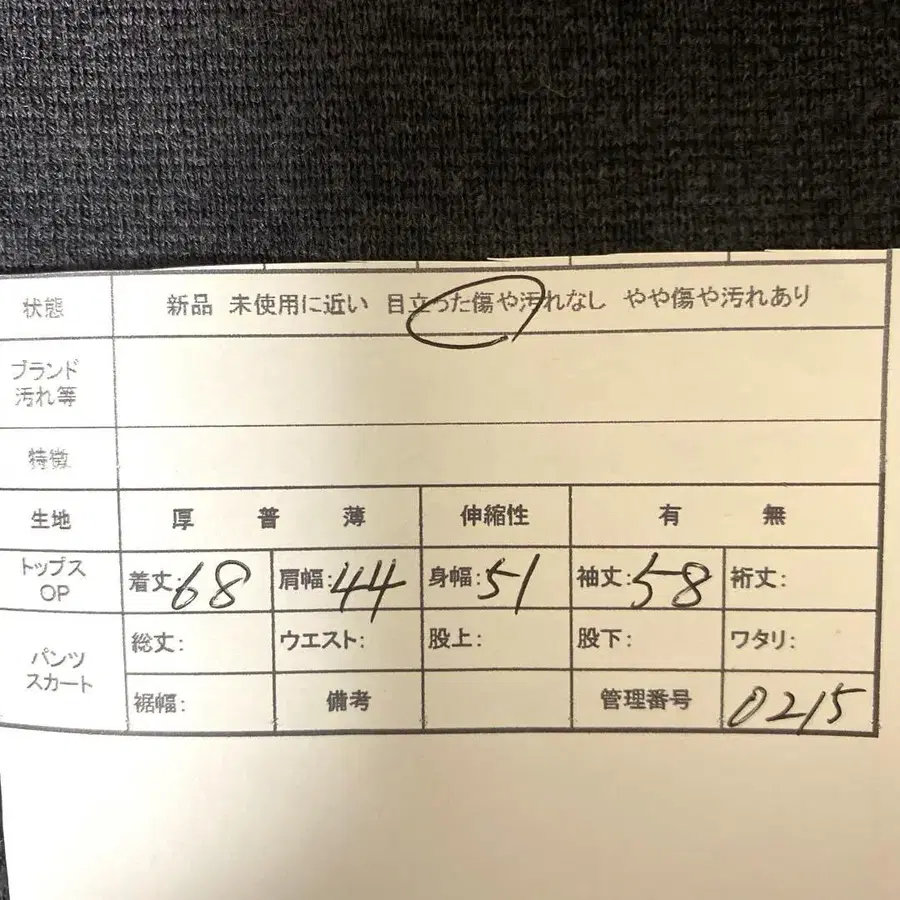 状態 新品 未使用に近い 目立った傷や汚れなし やや傷や汚れあり
ブランド
汚れ等
特徴
生地 厚 普 薄 伸縮性 有 無
トップス
OP
着丈:68 肩幅:44 身幅:51 袖丈:58 裄丈:
パンツ
スカート
総丈: ウエスト: 股上: 股下: ワタリ:
裾幅: 備考 管理番号 0215